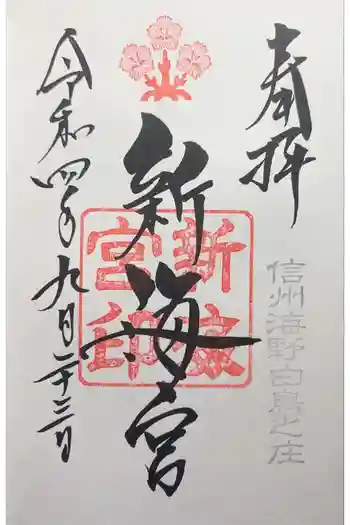 奉拝
信州海野白鳥之庄
新海宮
令和四年九月二十三日